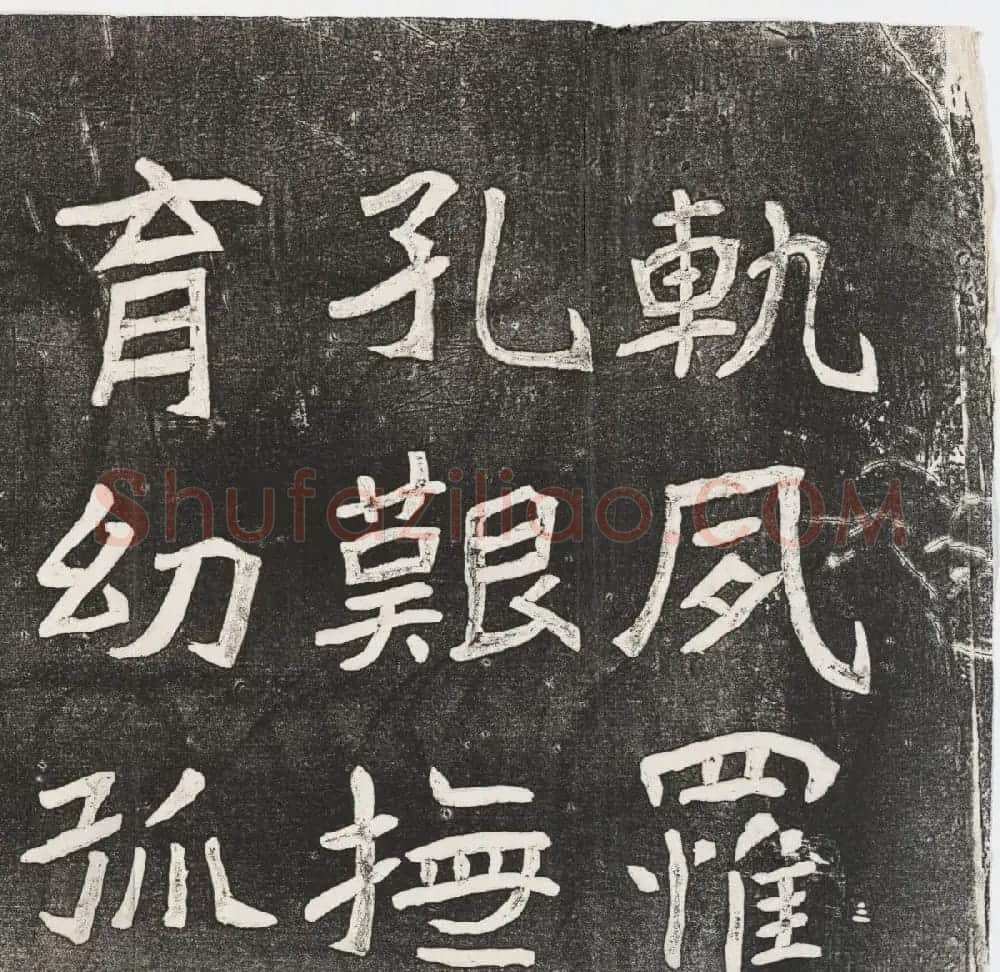 軌夙罹
孔艱撫
育幼孤
Shufaziliao.COM